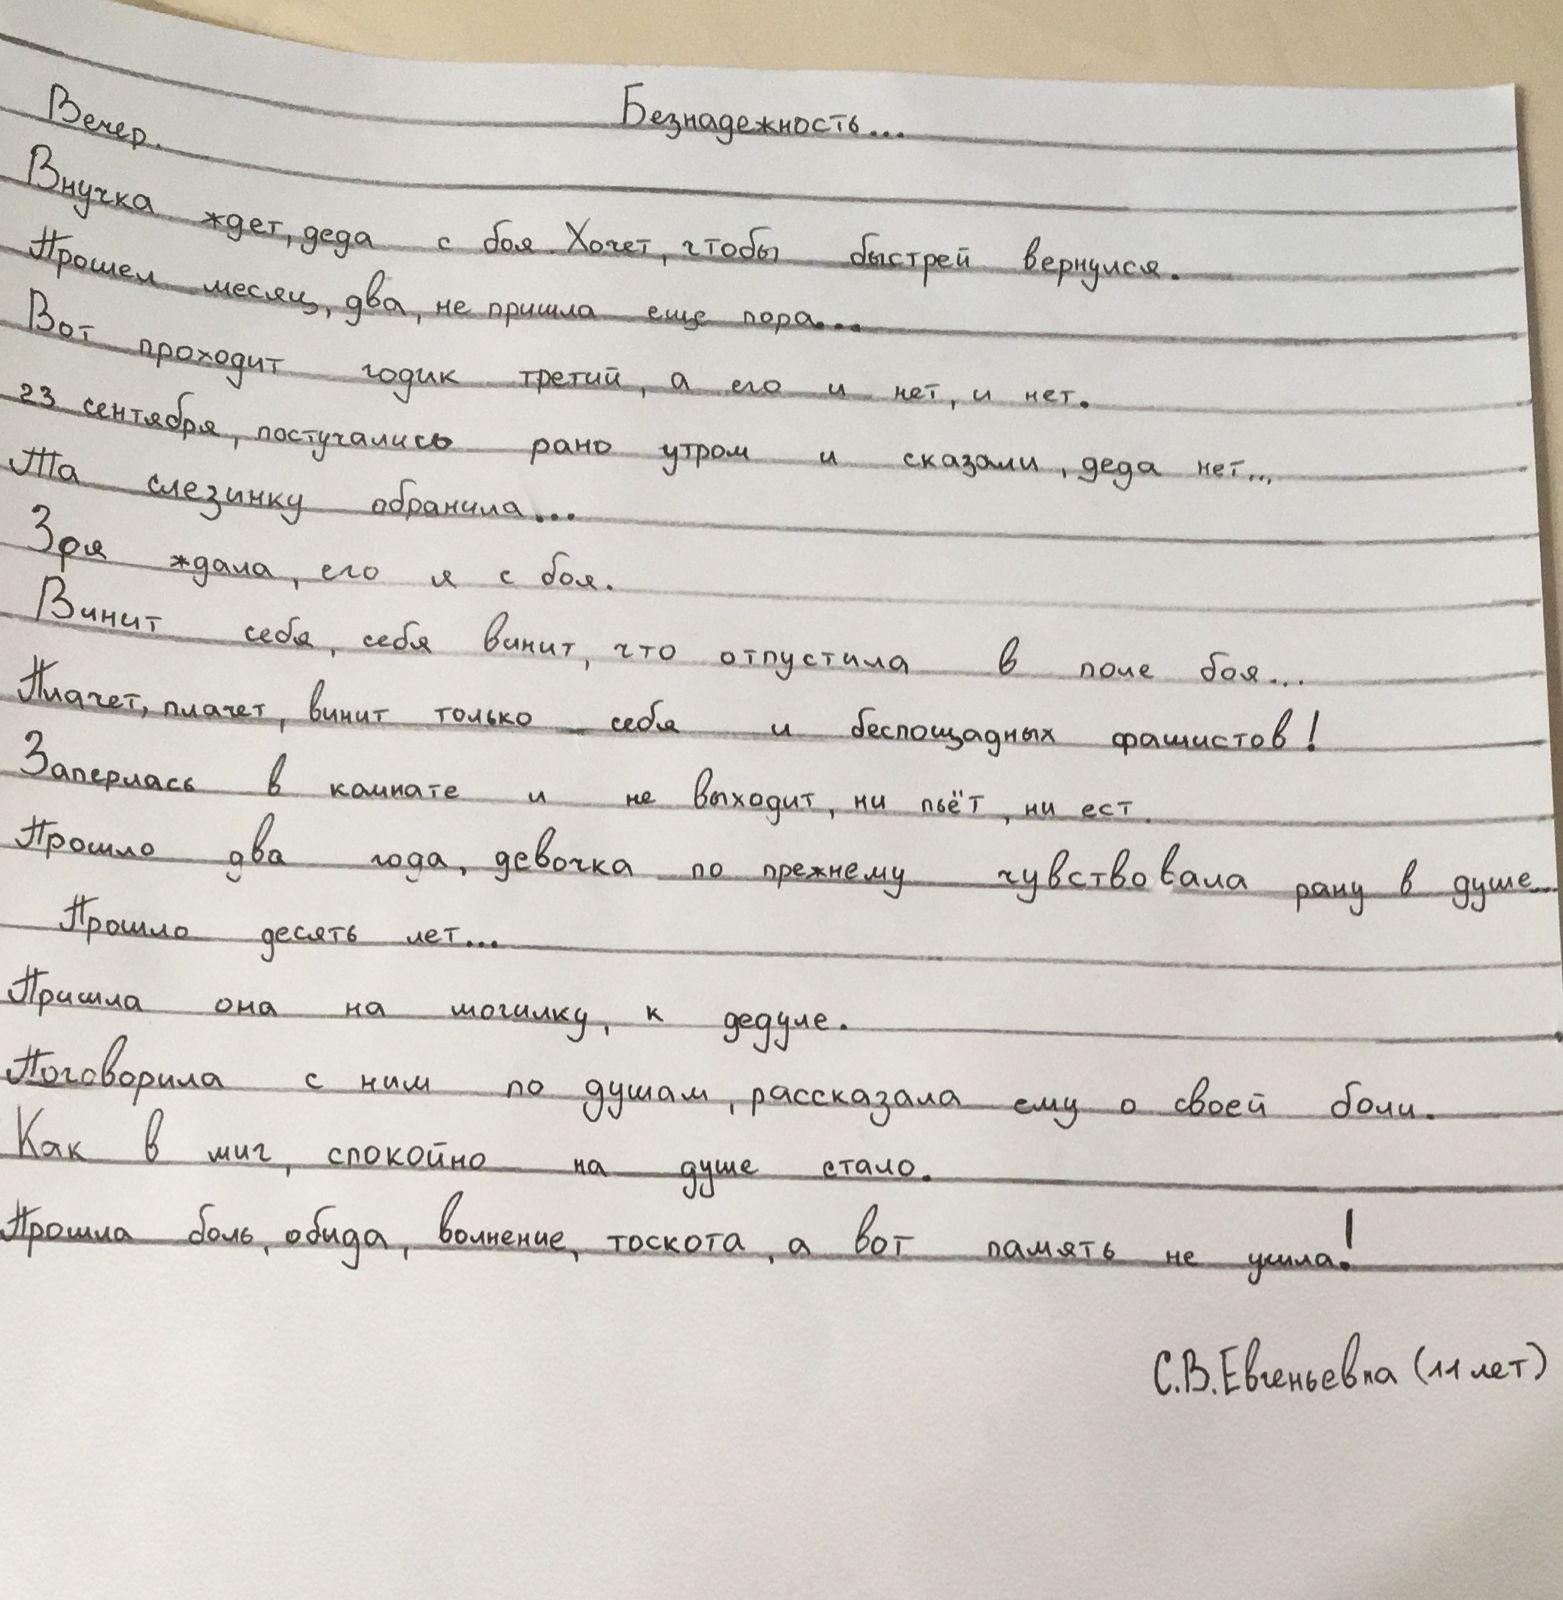 Безнадежность...
Вечер.
Внучка ждет, деда с боя. Хочет, чтобы быстрей вернулся.
Прошел месяц, два, не пришла еще пора...
Вот проходит годик третий, а его и нет, и нет.
23 сентября, постучались рано утром и сказали, деда нет...
Та слезинку обранила...
Зря ждала, его я с боя.
Винит себя, себя винит, что отпустила в поле боя...
Плачет, плачет, винит только себя и беспощадных фашистов!
Заперлась в комнате и не выходит, ни пьёт, ни ест.
Прошло два года, девочка по прежнему чувствовала рану в душе...
Прошло десять лет...
Пришла она на могилку, к дедуле.
Поговорила с ним по душам, рассказала ему о своей боли.
Как в миг, спокойно на душе стало.
Прошла боль, обида, волнение, тоскота, а вот память не ушла!
С.В.Евгеньевна (11 лет)